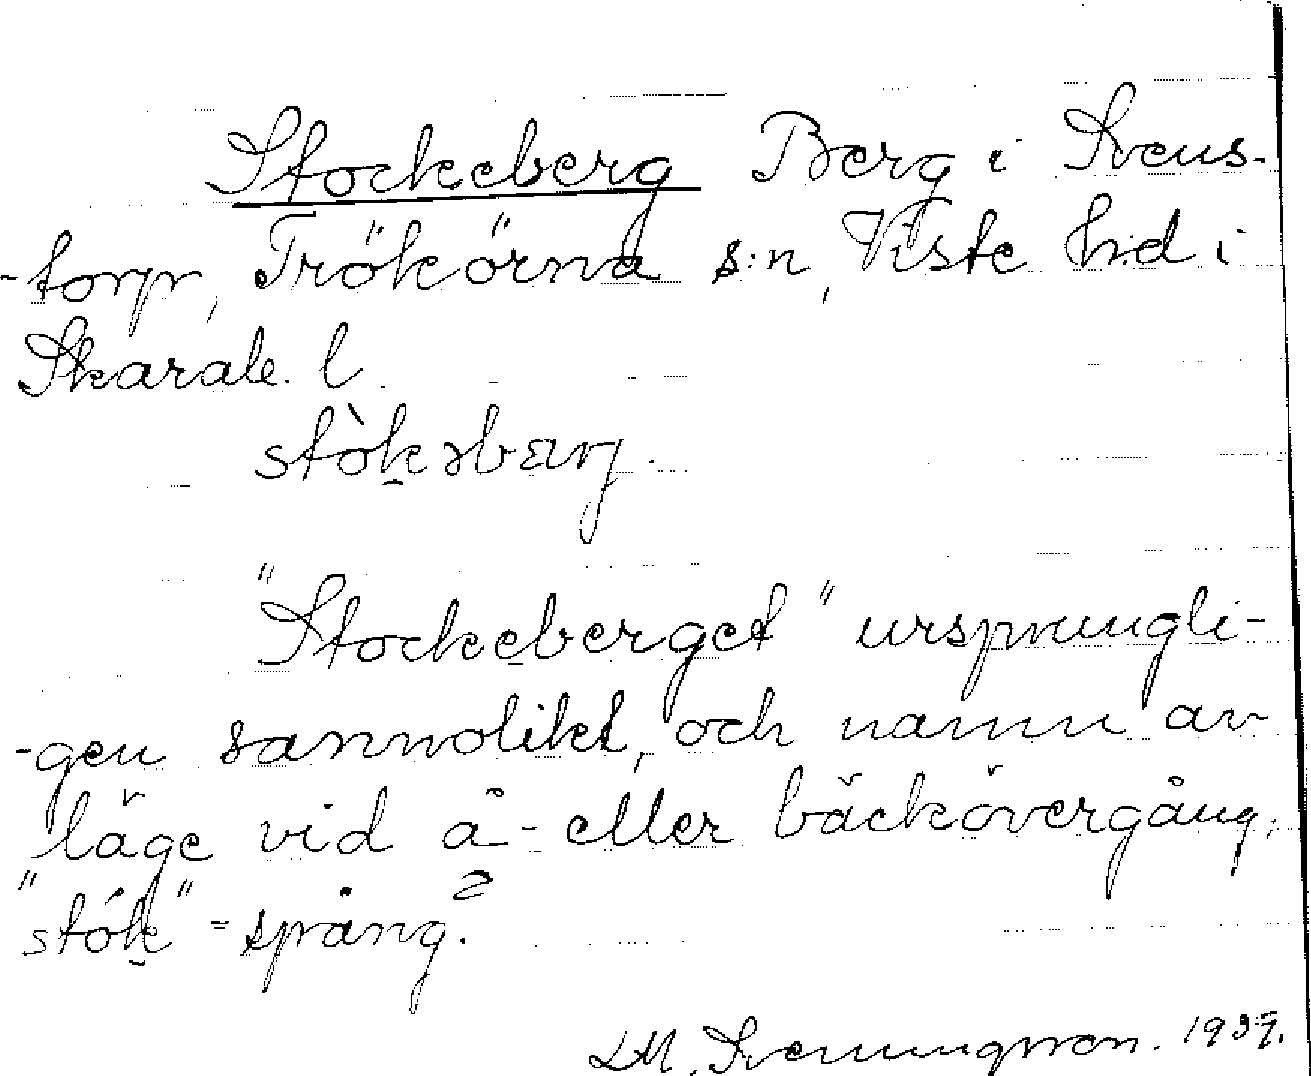 Stockeberg Berg i Svens-
-torp, Trökörna s:n, Viste hd i
Skarab. l.
stòk̯əbærj.
"Stockeberget" ursprungli-
-gen sannolikt, och namn av
läge vid å- eller bäckövergång,
"stók̯" = spång?
LM. Svenungsson. 1939.